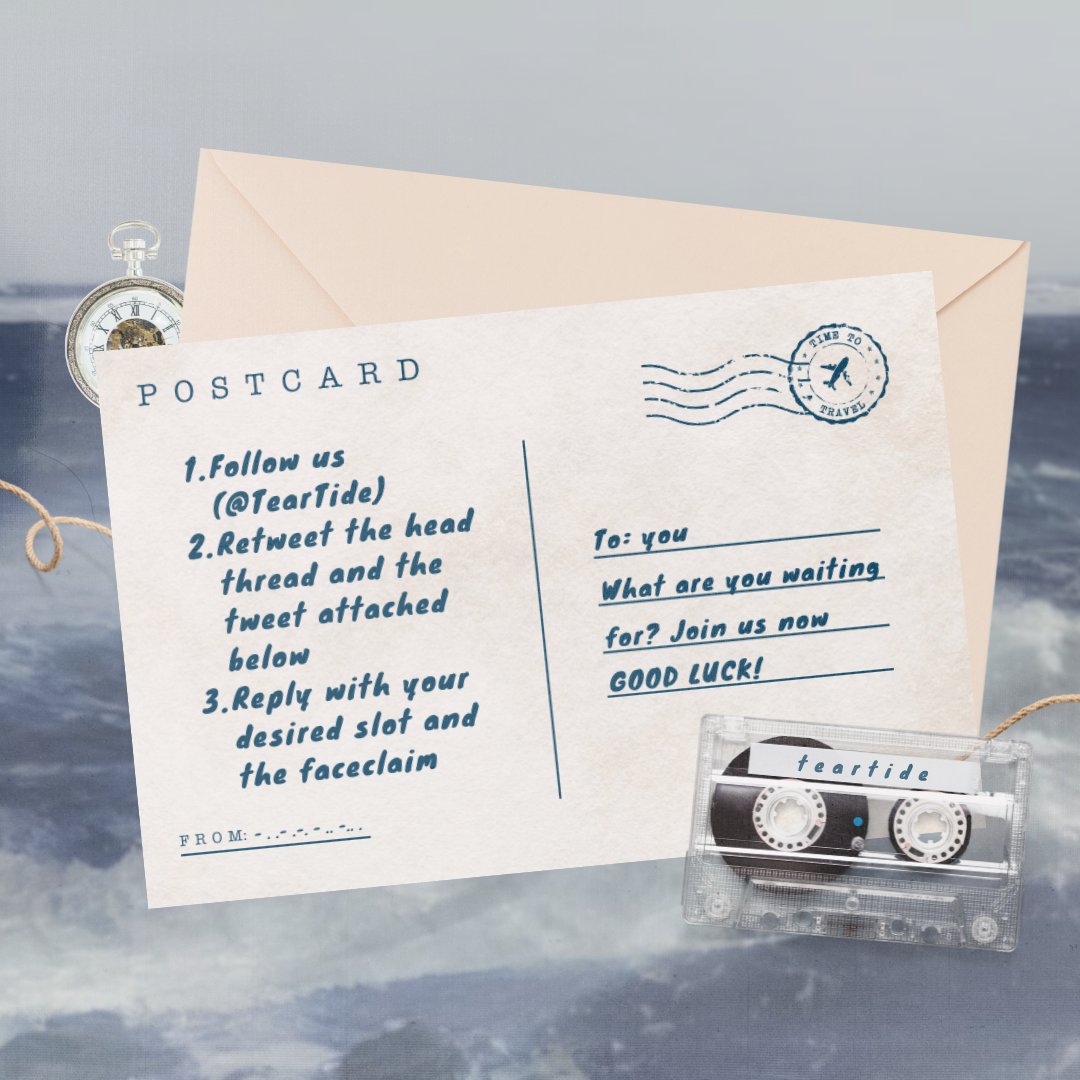 POSTCARD
TIME TO
TRAVEL
1.Follow us
(@TearTide)
2.Retweet the head
thread and the
tweet attached
below
3.Reply with your
desired slot and
the faceclaim
FROM:
To: you
What are you waiting
for? Join us now
GOOD LUCK!
teartide